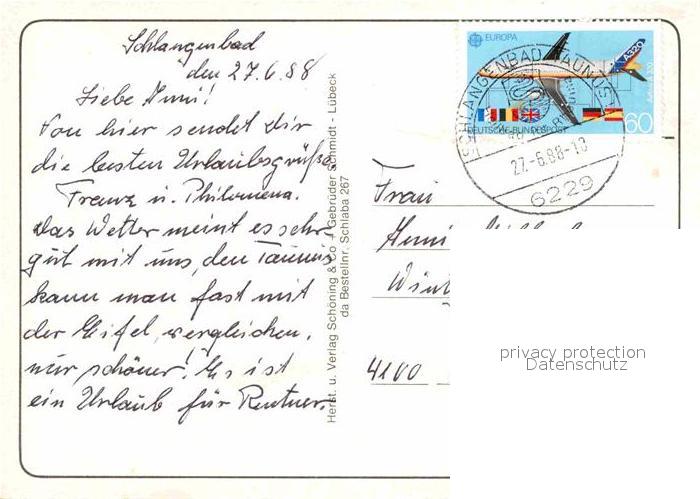 Schlangenbad
den 27.6.88
Liebe Änni!
Von hier sendet Dir
die besten Urlaubsgrüße
Franz u. Philomena.
Das Wetter meint es sehr
gut mit uns, den Taunus
kann man fast mit
der Eifel vergleichen,
nur schöner! Es ist
ein Urlaub für Rentner.
Herst. u. Verlag Schöning & Co + Gebrüder Schmidt - Lübeck
da Bestellnr. Schlaba 267
EUROPA
A320
60
DEUTSCHE BUNDESPOST
SCHLANGENBAD, TAUNUS 1
27.-6.88-18
6229
Frau
Änni
4100
privacy protection
Datenschutz